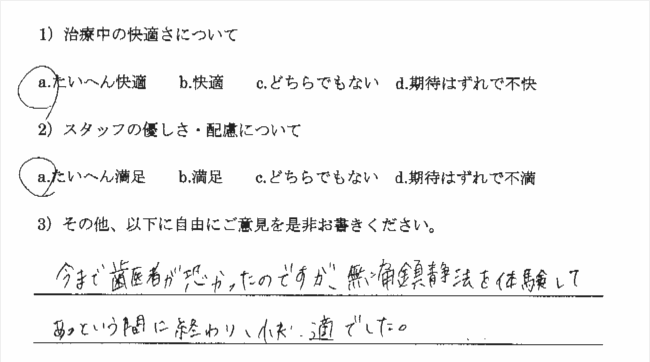 1）治療中の快適さについて
a.たいへん快適　　b.快適　　c.どちらでもない　d.期待はずれで不快
2）スタッフの優しさ・配慮について
a.たいへん満足　　b.満足　　c.どちらでもない　d.期待はずれで不満
3）その他、以下に自由にご意見を是非お書きください。
今まで歯医者が恐かったのですが、無痛鎮静法を体験して
あっという間に終わり、快適でした。